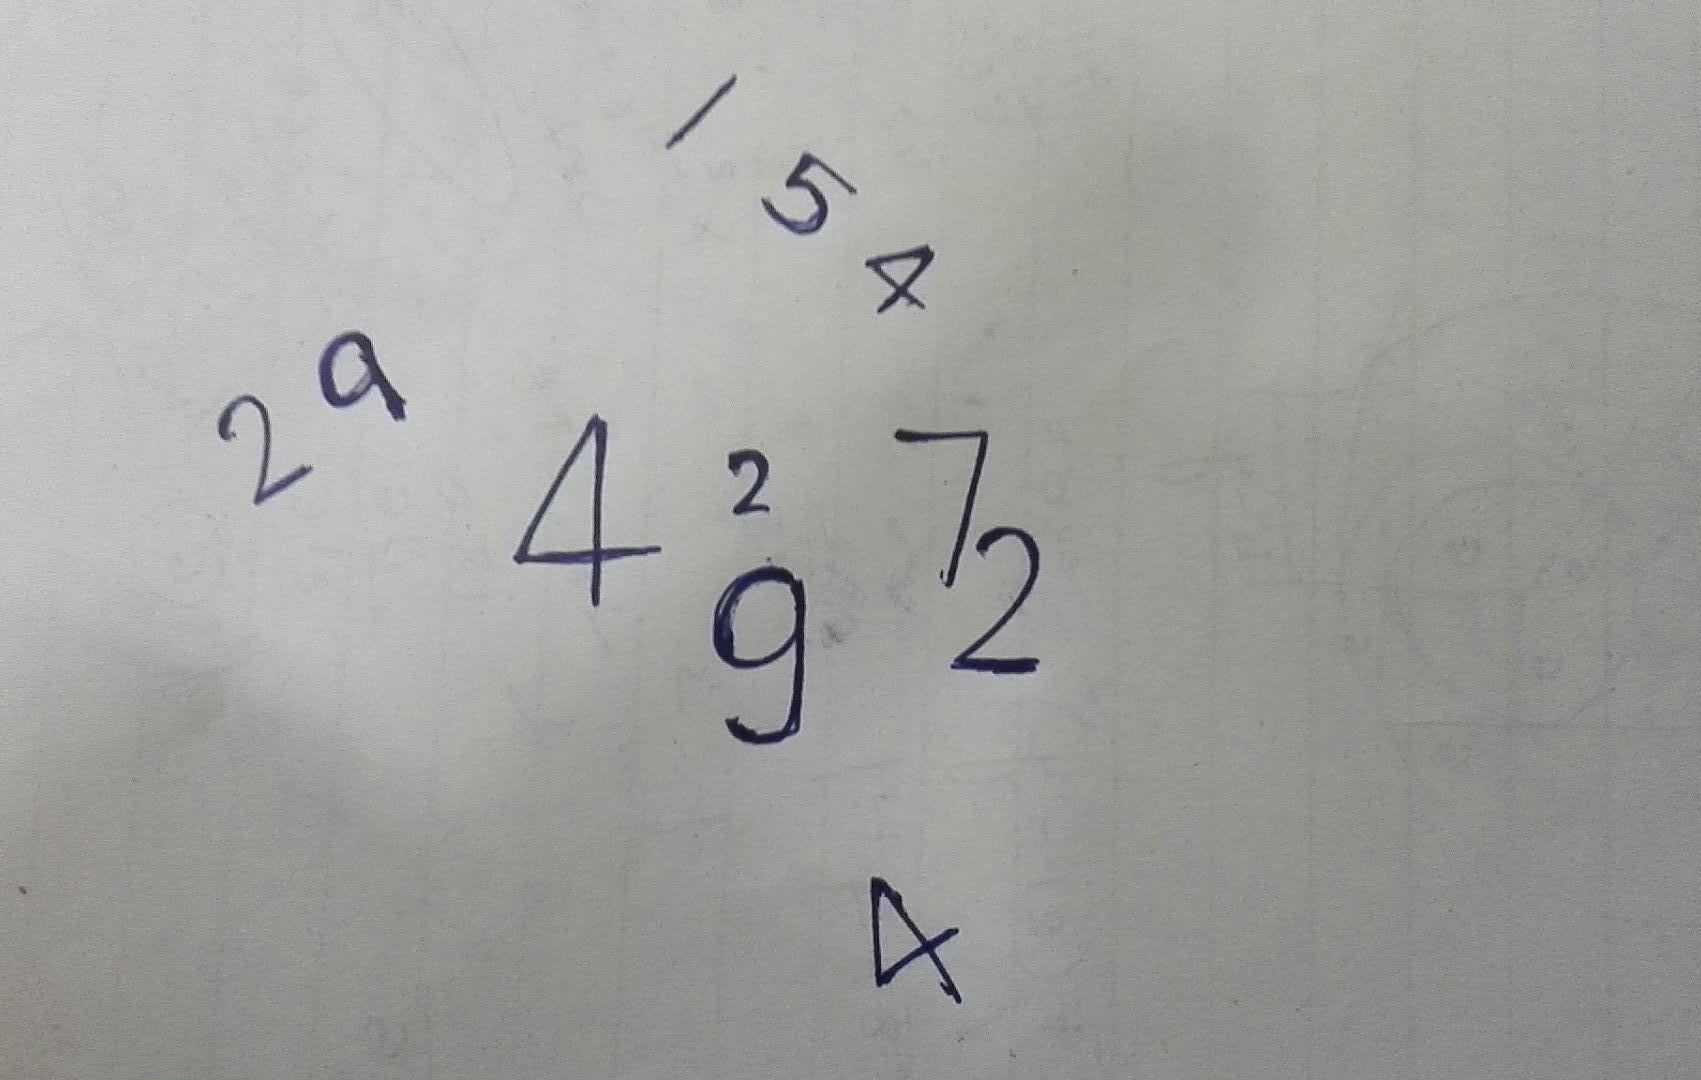 1
5
4
2 9
4 2 7
9 2
4